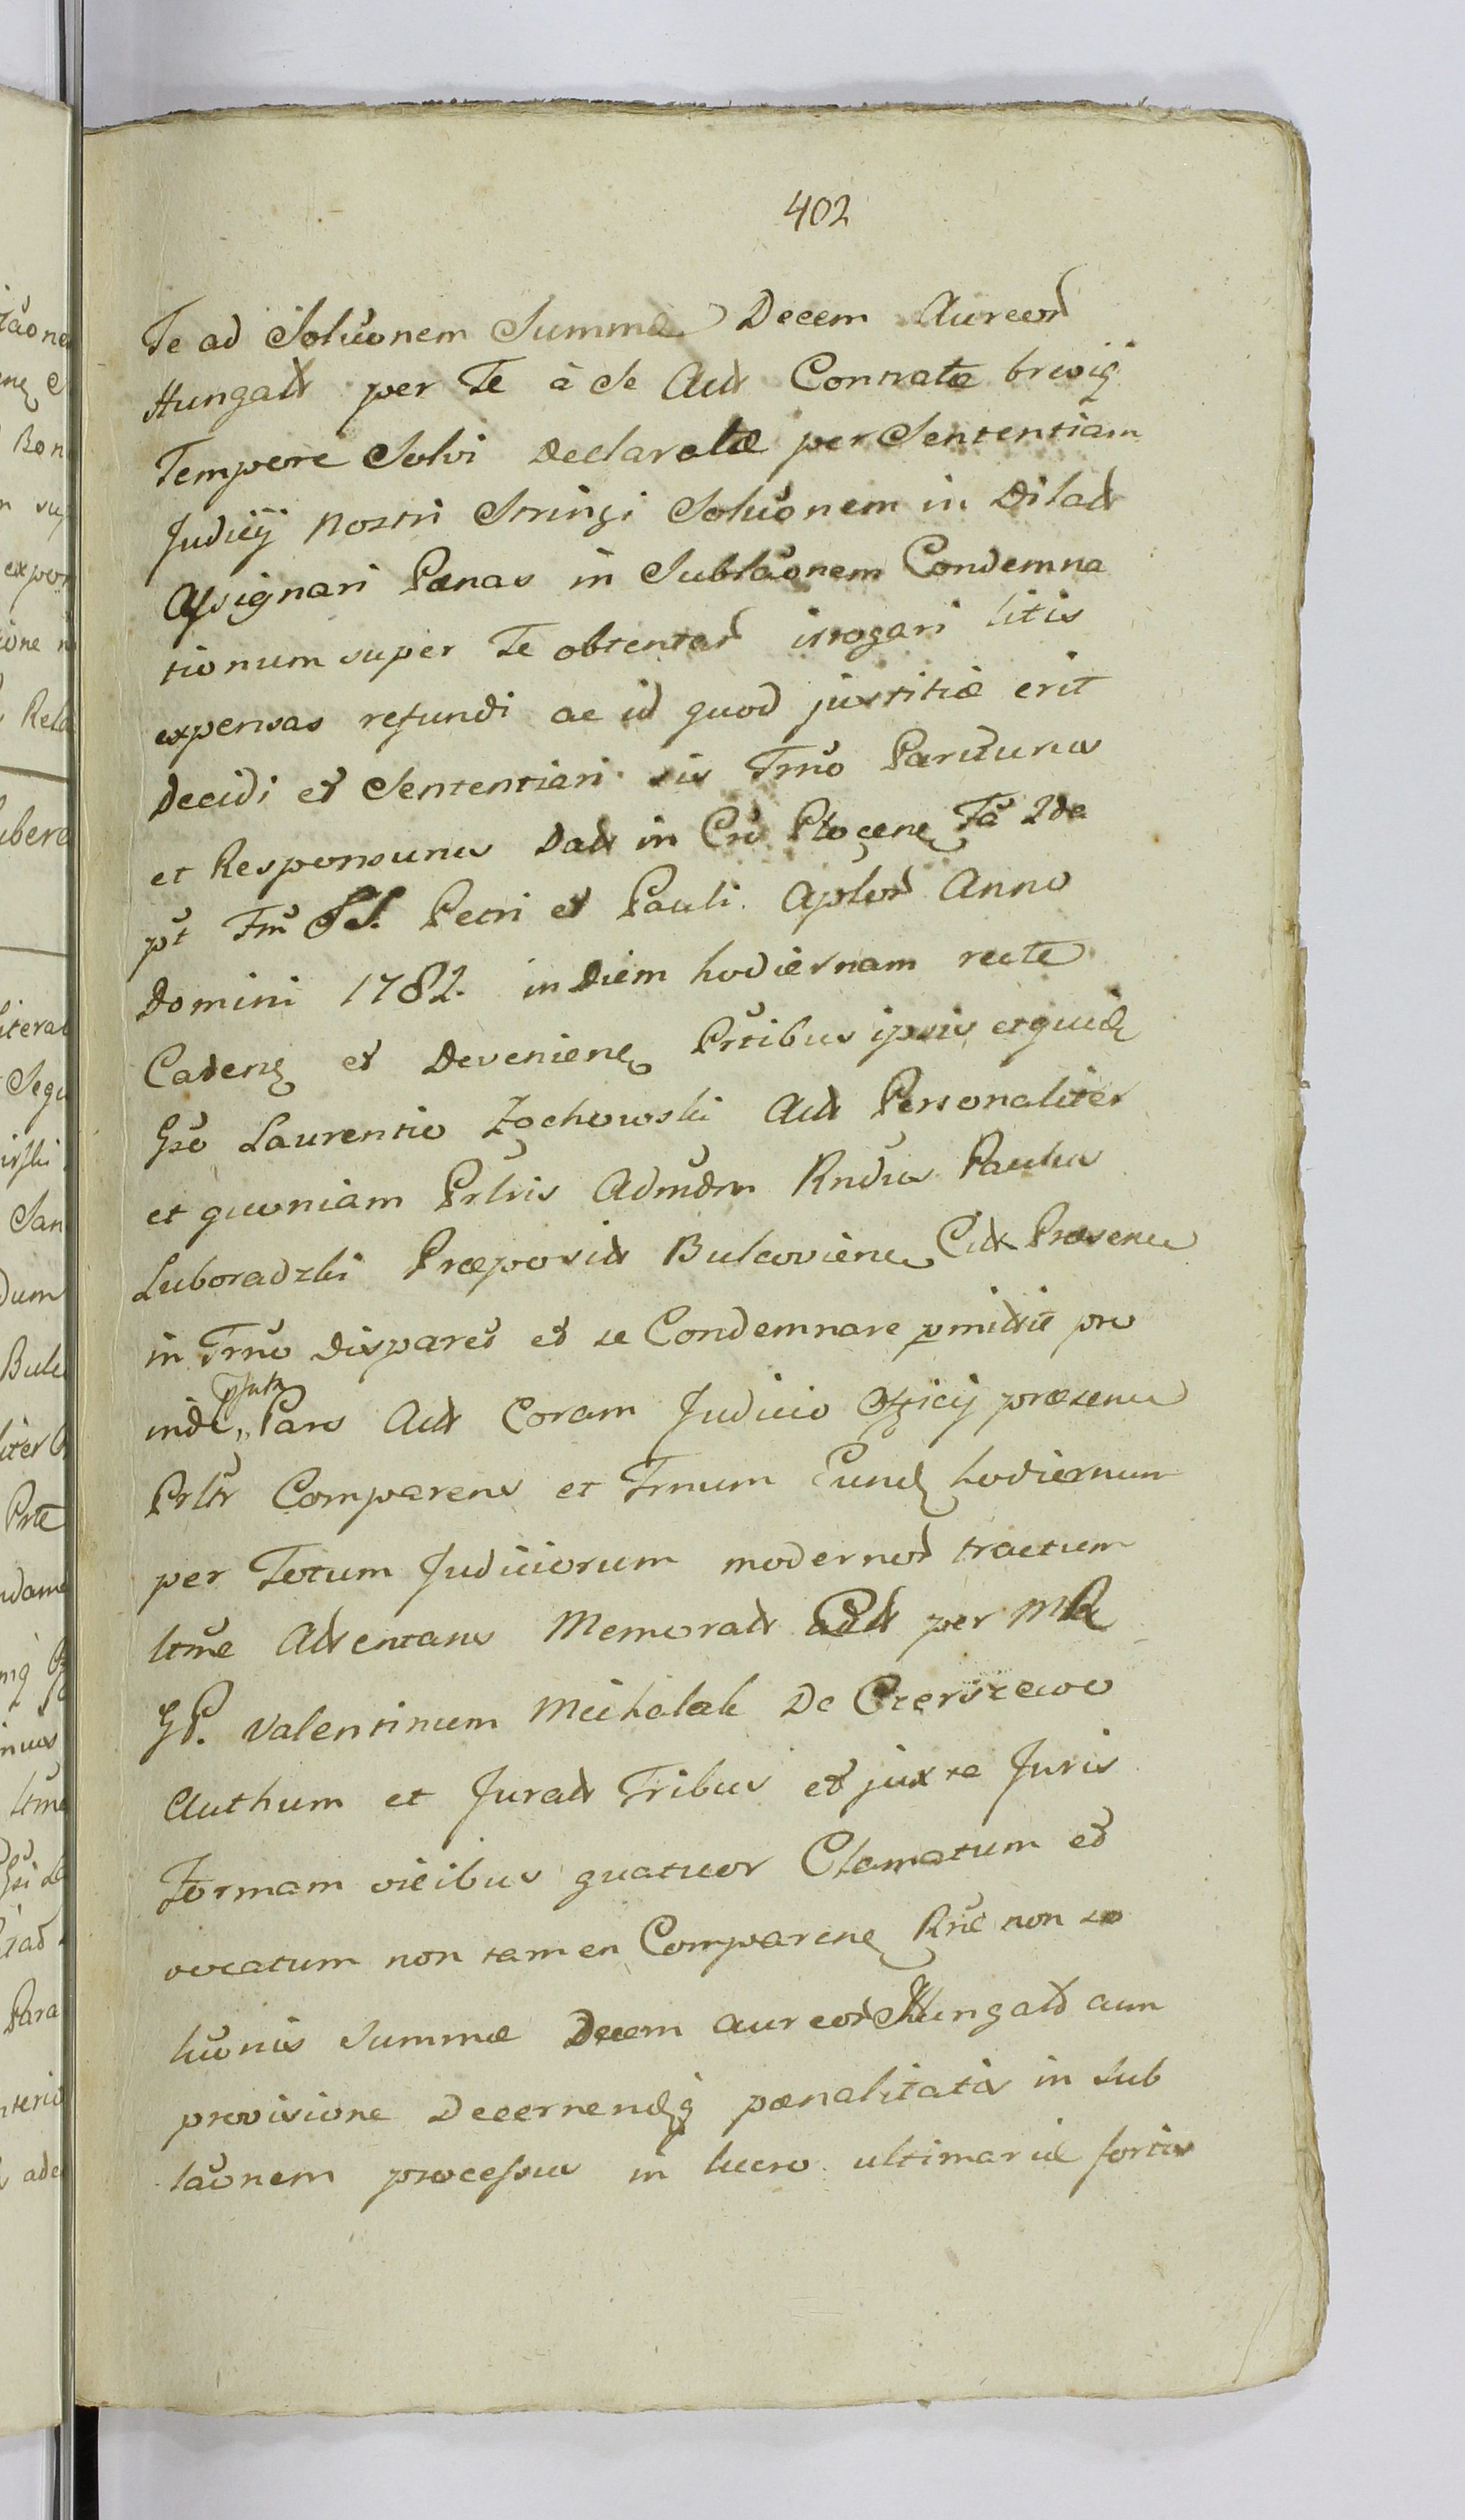 402
Te ad Soluõnem Summæ Decem Aureor
Hungal per Te à Se Act Contratæ brevi
Tempore Solvi Declaratæ per Sententiam
Judicij Nostri Stringi Soluõnem in Dilat
Assignari Pænas in Sublaõnem Condemna
tionum super Te obtentar irrogari litis
expensas refundi ac id quod justitiæ erit
Decidi et Sententiari sis Trno Pariturus
et Responsurus Dat in Cro Plocen Fa 2da
pt Fm SS. Petri et Pauli Aplor Anno
Domini 1782. in Diem hodiernam recte
Caden et Devenien Prtibus ipsis et quid
Gso Laurentio Żochowski Act Personaliter
et quoniam Prlris Admdm Rndus Paulus
Luboradzki Præposit Bulcovien Cit Præsens
in Trno disparet et se Condemnare pmittit pro
inde pfata Pars Act Coram Judicio Officij præsens
Prltr Comparens et Trnum Eund hodiernum
per Totum Judiciorum modernor tractum
ltme Attentans Memorat Cit per MR
GP. Valentinum Michalak De Czerszewo
Authum et Jurat Tribus et juxta Juris
Formam vicibus quatuor Clamatum et
vocatum non tamen Comparen Rne non so
luõnis Summæ Decem aureor Hungal cum
provisione Decernend pænalitatis in sub
laõnem processus in lucro ultimariæ sortis